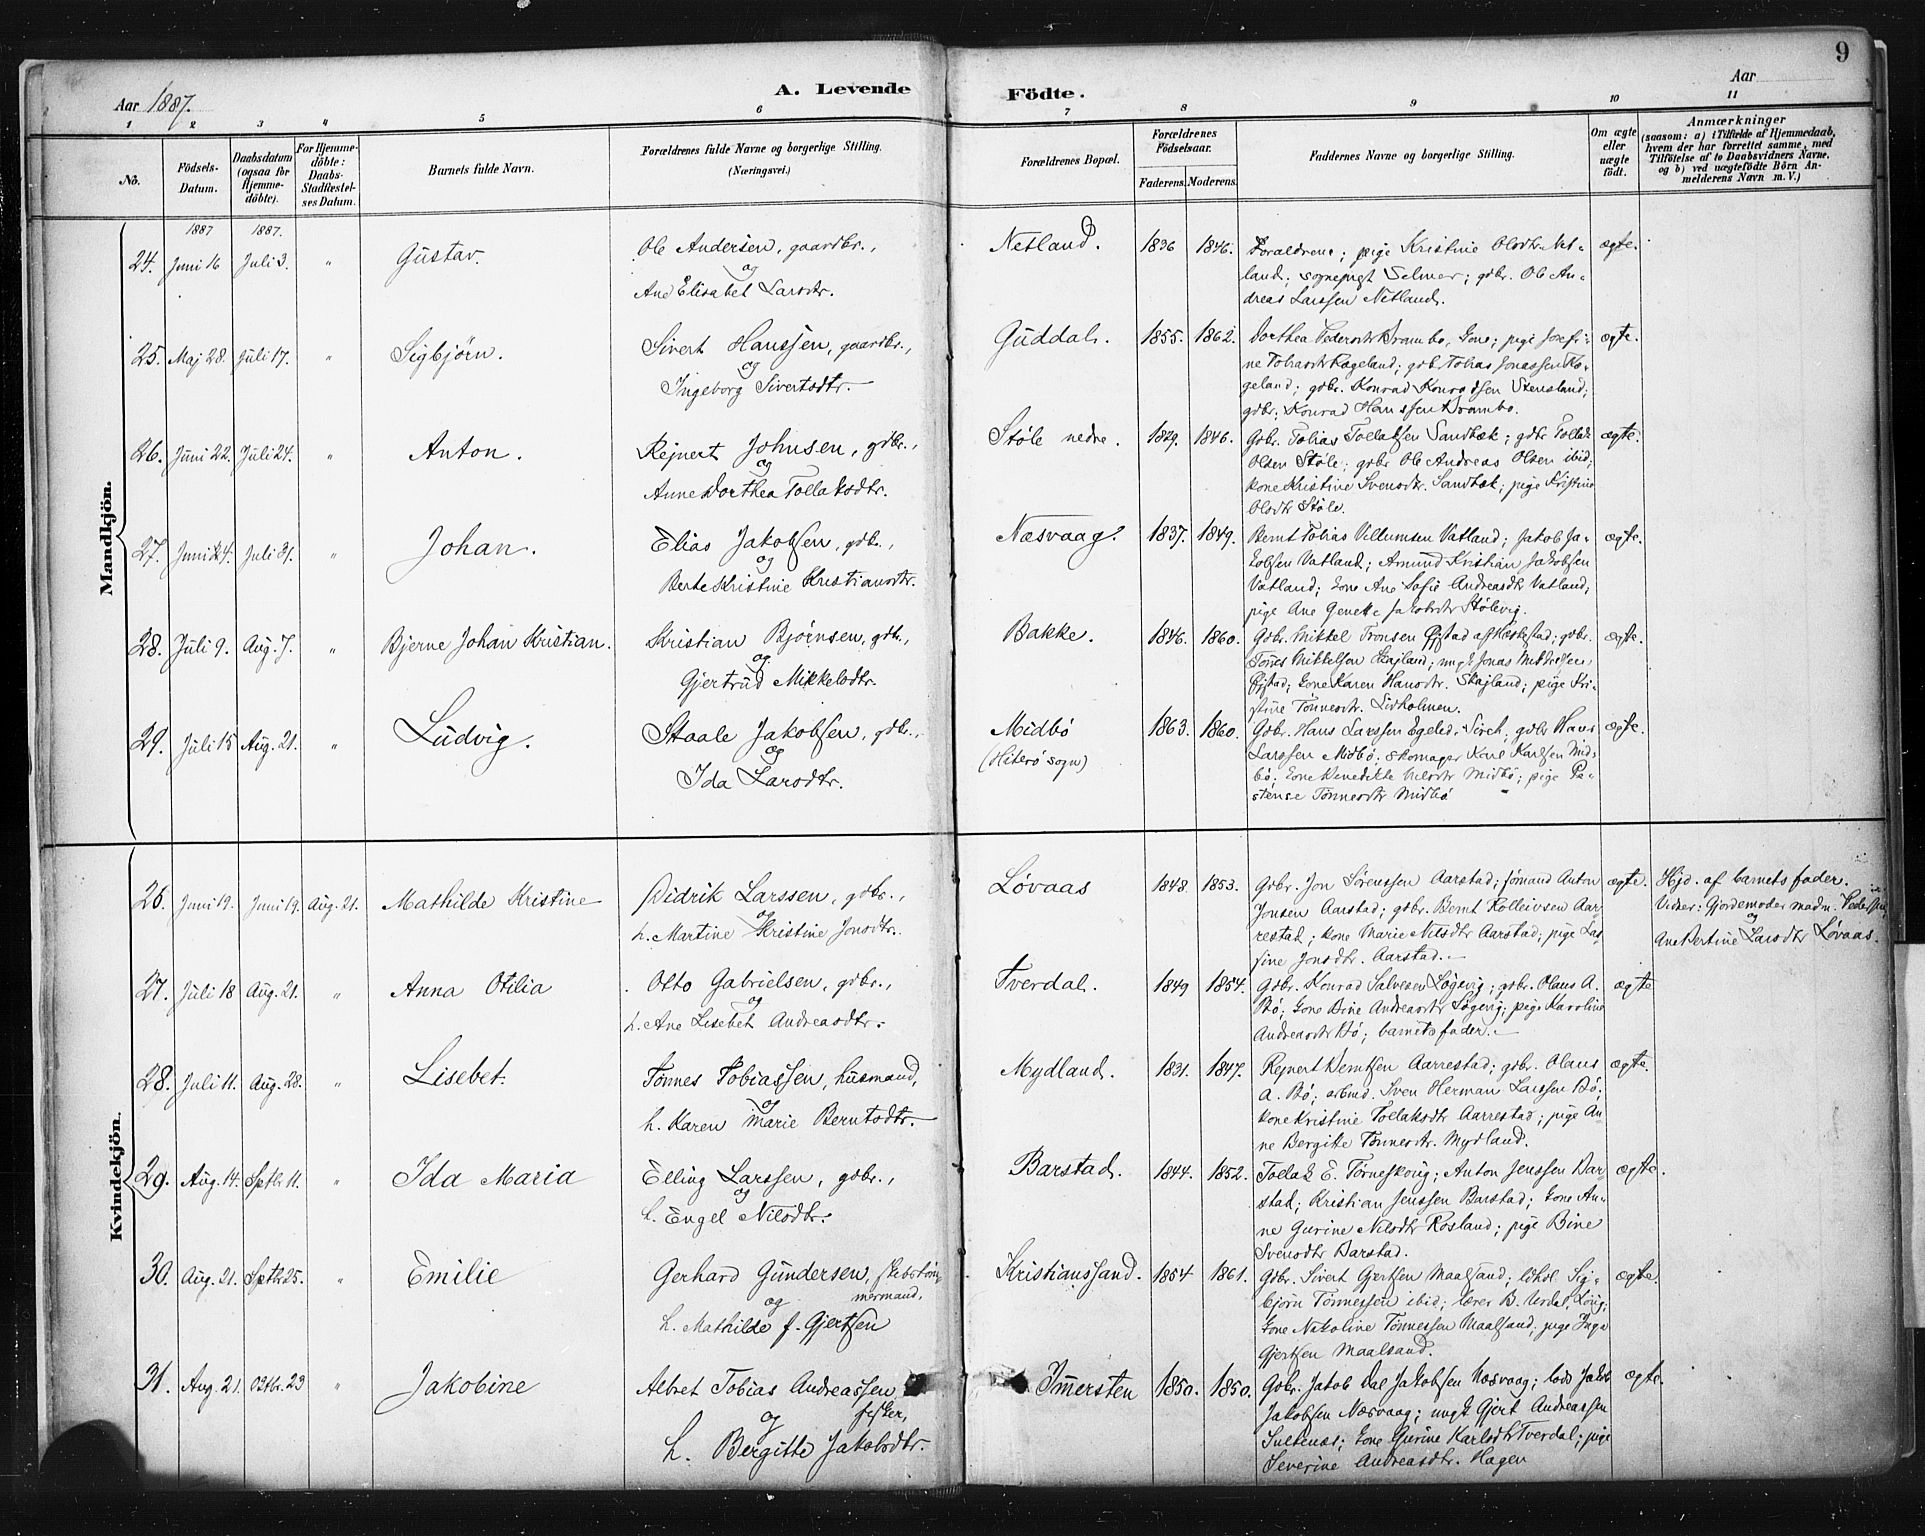 9
Aar 1887.
A. Levende Födte.
Aar
1 2 3 4 5 6 7 8 9 10 11
No.
Födsels-Datum.
Daabsdatum (ogsaa for Hjemme-döbte).
For Hjemme-döbte: Daabs-Stadfæstel-ses Datum.
Barnets fulde Navn.
Forældrenes fulde Navne og borgerlige Stilling. (Næringsvei.)
Forældrenes Bopæl.
Forældrenes Födselsaar.
Faderens. Moderens.
Faddernes Navne og borgerlige Stilling.
Om ægte eller uægte födt.
Anmærkninger
(saasom: a) i Tilfælde af Hjemmedaab, hvem der har forrettet samme, med Tilföielse af to Daabsvidners Navne, og b) ved uægtefödte Börn An-melderens Navn m. V.)
Mandkjön.
1887 1887.
24. Juni 16 Juli 3. " Gustav.
Ole Andersen, gaardbr.,
og
Ane Elisabet Larsdtr.
Netland. 1836 1846.
Forældrene; pige Kristine Olsdtr. Net-
land; sogneprest Selmer; gdbr. Ole An-
dreas Larssen Netland.
ægte.
25. Maj 28. Juli 17. " Sigbjörn.
Sivert Hanssen, gaardbr.,
og
Ingeborg Sivertsdtr.
Guddal. 1855. 1862.
Dorthea Pedersdtr Brambo, kone; pige Josefi-
ne Tobiasdtr Rageland; gdbr. Tobias Jonassen Ro-
geland; gdbr. Konrad Konradsen Stensland;
gdbr. Konrad Hanssen Brambo.
ægte.
26. Juni 22. Juli 24. " Anton.
Rejnert Johnsen, gdbr.,
og
Anne Dorthea Tollaksdtr.
Støle nedre. 1829. 1846.
Gdbr. Tobias Tollaksen Sandbæk; gdbr Tollak
Olsen Støle; gdbr Ole Andreas Olsen ibid;
kone Kristine Svensdtr. Sandbæk; pige Kristine
Olsdtr Støle.
ægte.
27. Juni 24. Juli 31. " Johan.
Elias Jakobsen, gdbr.,
og
Berte Kristine Kristiansdtr.
Næsvaag. 1837. 1849.
Bernt Tobias Villumsen Vatland; Jakob Ja-
kobsen Vatland; Amund Kristian Jakobsen
Vatland; kone Ane Sofie Andreasdtr Vatland;
pige Ane Genette Jakobsdtr Stølevig.
ægte.
28. Juli 9. Aug. 7. " Bjerne Johan Kristian.
Kristian Bjørnsen, gdbr.,
og
Gjertrud Mikkelsdtr.
Bakke. 1846. 1860.
Gdbr. Mikkel Tronsen Øfstad af Heskestad; gdbr.
Tönnes Mikkelsen Skajland; ungk Jonas Mikkelsen
Øfstad; kone Karen Hansdtr. Skajland; pige Kri-
stine Tönnesdtr. Lidholmen.
ægte.
29. Juli 15 Aug. 21. " Ludvig.
Staale Jakobsen, gdbr.,
og
Ida Larsdtr.
Midbö
(Hiterø sogn)
1863. 1860.
Gdbr. Hans Larssen Egeled, gdbr Hans
Larssen Midbö; skomager Karl Karlsen Mid-
bö; kone Benedikte Nilsdtr Midbö; pige
Tönnesdtr Midbö
ægte.
Kvindekjön.
26. Juni 19. Juni 19. Aug. 21. Mathilde Kristine
Didrik Larssen, gdbr.,
og
h. Martine Kristine Jonsdtr.
Løvaas 1848. 1853.
Gdbr. Jon Sørenssen Aarstad; sömand Anton
Jonsen Aarstad; gdbr. Bernt Rolleivsen Aar-
restad; kone Marie Nilsdtr Aarstad; pige Las-
sine Jonsdtr. Aarstad.
ægte.
Hjd. af barnets fader.
Vidner: Gjordemoder madm. Pederssen
og
Ane Bertine Larsdtr Løvaas.
27. Juli 18 Aug. 21. " Anna Otilia
Otto Gabrielsen, gdbr.,
og
h. Ane Lisebet Andreasdtr.
Tverdal. 1849 1854.
Gdbr. Konrad Salvesen Løgevig; gdbr. Olaus A.
Bö; kone Bine Andreasdtr Løgevig; pige Karoline
Andreasdtr Bö; barnets fader.
ægte
28. Juli 11. Aug. 28. " Lisebet.
Tönnes Tobiassen, husmand,
og
h. Karen Marie Berntsdtr.
Mydland. 1831. 1847.
Rejnert Berntsen Aarrestad; gdbr. Olaus
A. Bö; arbmd. Sven Herman Larssen Bö;
kone Kristine Tollaksdtr Aarrestad; pige An-
ne Bergitte Tönnesdtr. Mydland.
ægte.
29. Aug. 14. Septbr 11. " Ida Maria
Elling Larssen, gdbr.,
og
h. Engel Nilsdtr.
Barstad. 1844. 1852.
Tollak E. Törneskrig; Anton Jenssen Bar-
stad; Kristian Jenssen Barstad; kone An-
ne Gurine Nilsdtr Rosland; pige Bine
Svensdtr Barstad.
ægte.
30. Aug. 21. Septbr 25. " Emilie
Gerhard Gundersen, skibstöm-
mermand,
og
h. Mathilde f. Gjertsen
Kristianssand. 1854 1861.
Gdbr. Sivert Gjertsen Maalsand; Sig-
bjørn Tönnessen ibid; lærer B. Urdal,
kone Nakoline Tönnessen Maalsand; pige Inga
Gjertsen Maalsand.
ægte.
31. Aug. 21. Oktbr. 23 " Jakobine
Albret Tobias Andreassen,
fisker,
og
h. Bergitte Jakobsdtr.
Imersten 1850. 1850.
Gdbr. Jakob Dal Jakobsen Næsvaag; lods Jakob
Jakobsen Næsvaag; ungk Gjert Andreassen
Sultenæs; kone Gurine Karlsdtr Tverdal; pige
Severine Andreasdtr. Hagen
ægte.